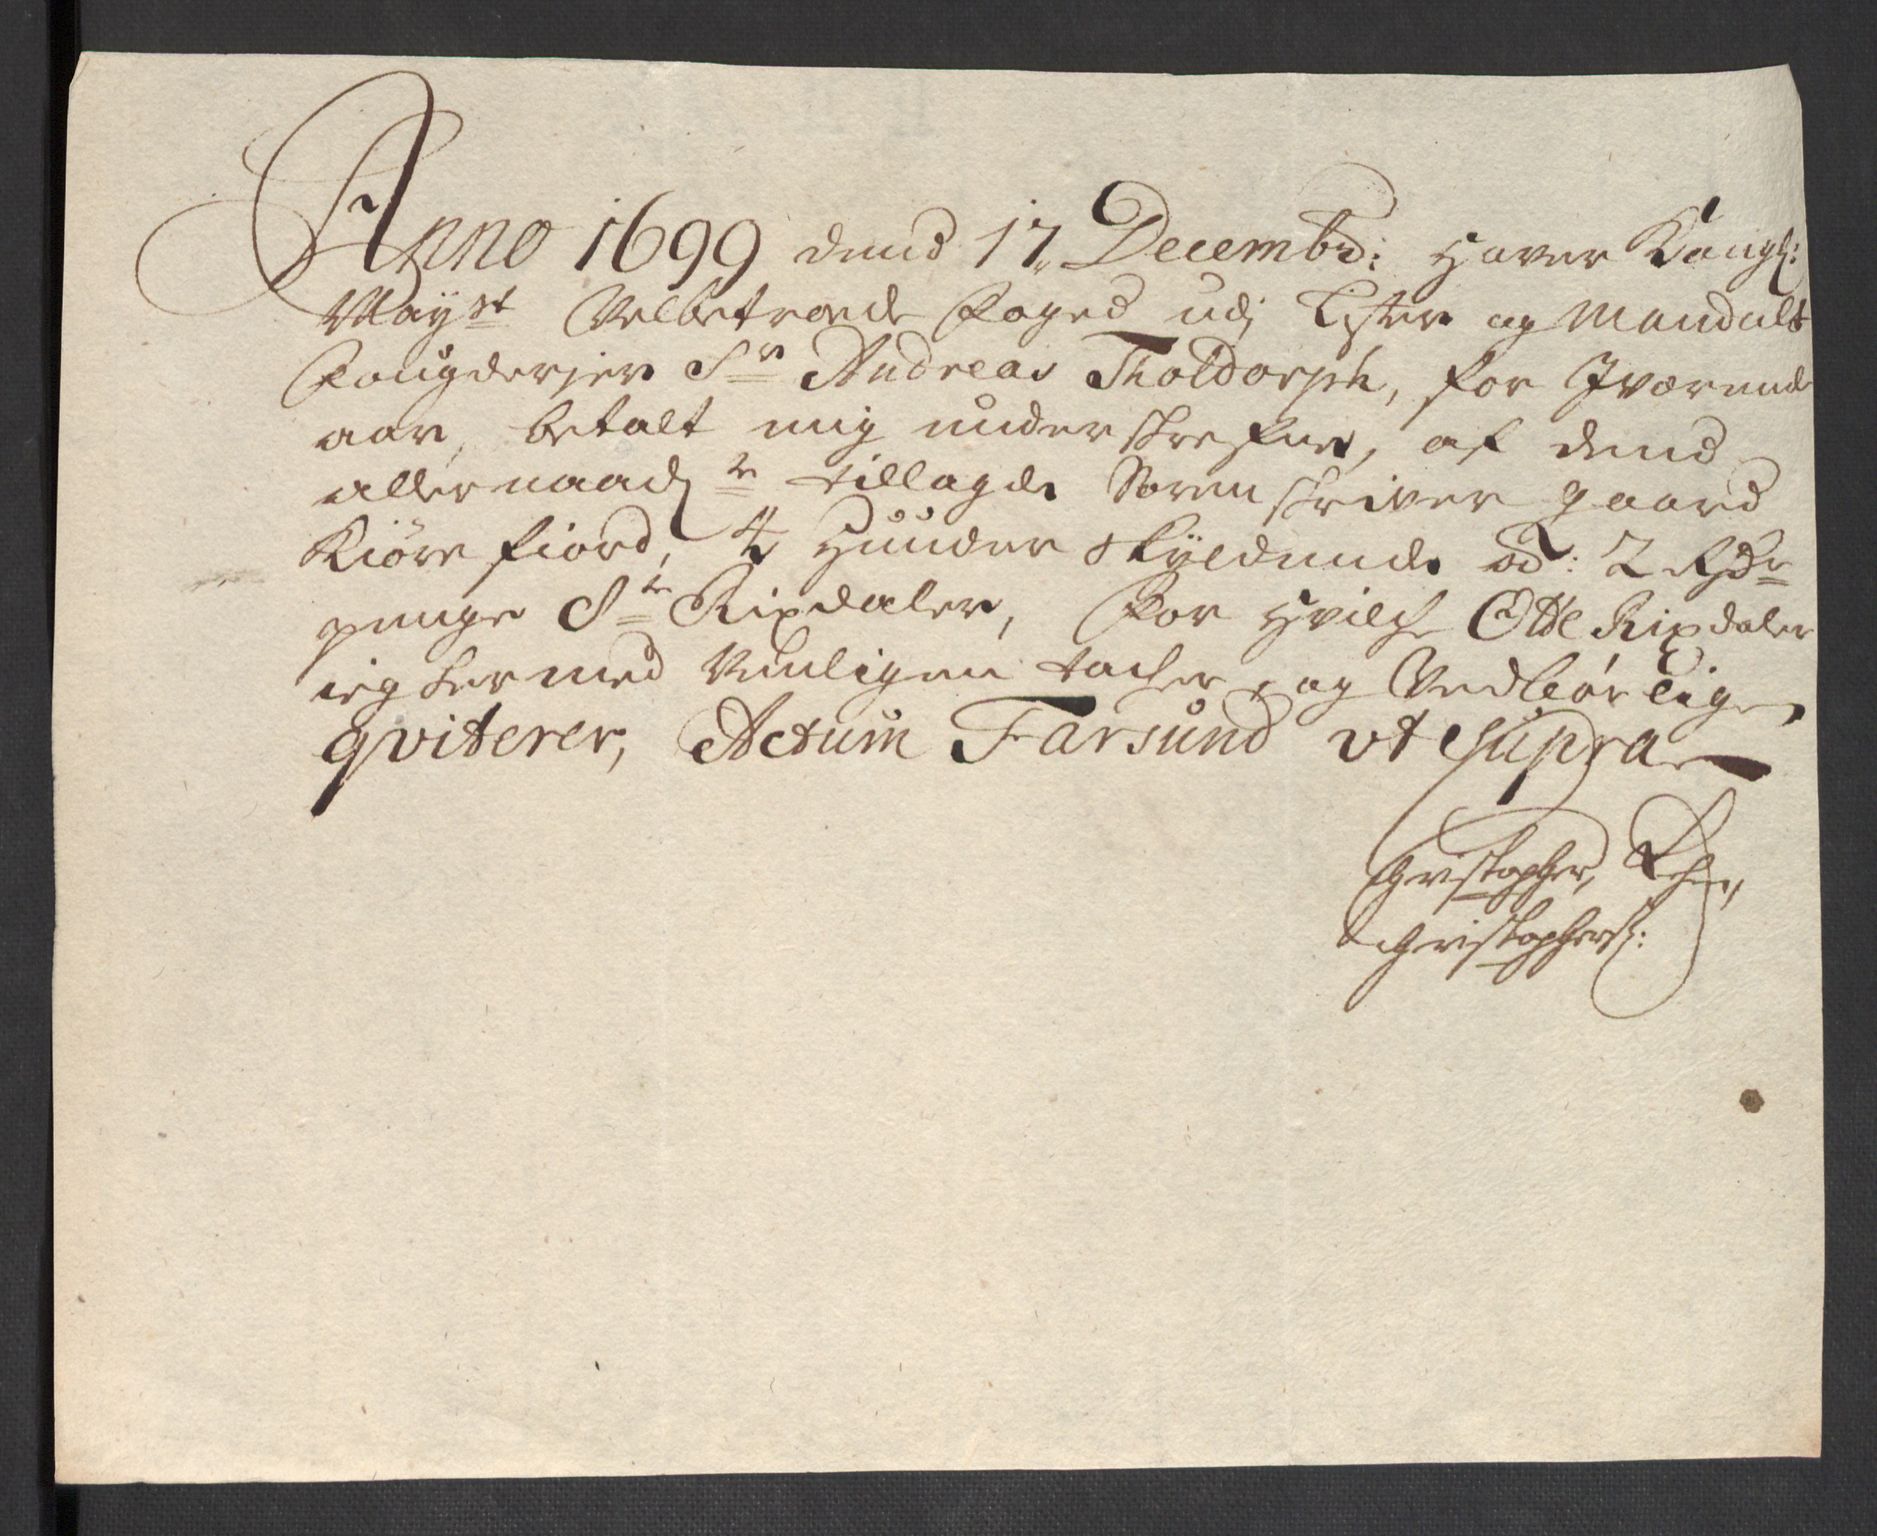 Anno 1699 dend 17 Decembr: Haver Kongl:
Mayst Velbetroede Foged udj Lister og Mandals
Fougderjer Sr Andreas Tholdorph, for Iværende
aar, betalt mig underskrefne, af dend
allernaadste tillagde Sorenskriver gaard
Kiørefiord, 4 Huuder skyldende od: 2 Rdr
penge Otte Rixdaler, For Hvilche Otte Rixdaler
ieg hermed Venligen tacher, og Vedbørligen
qviterer, Actum Farsund ut supra
Christopher
Christophers: